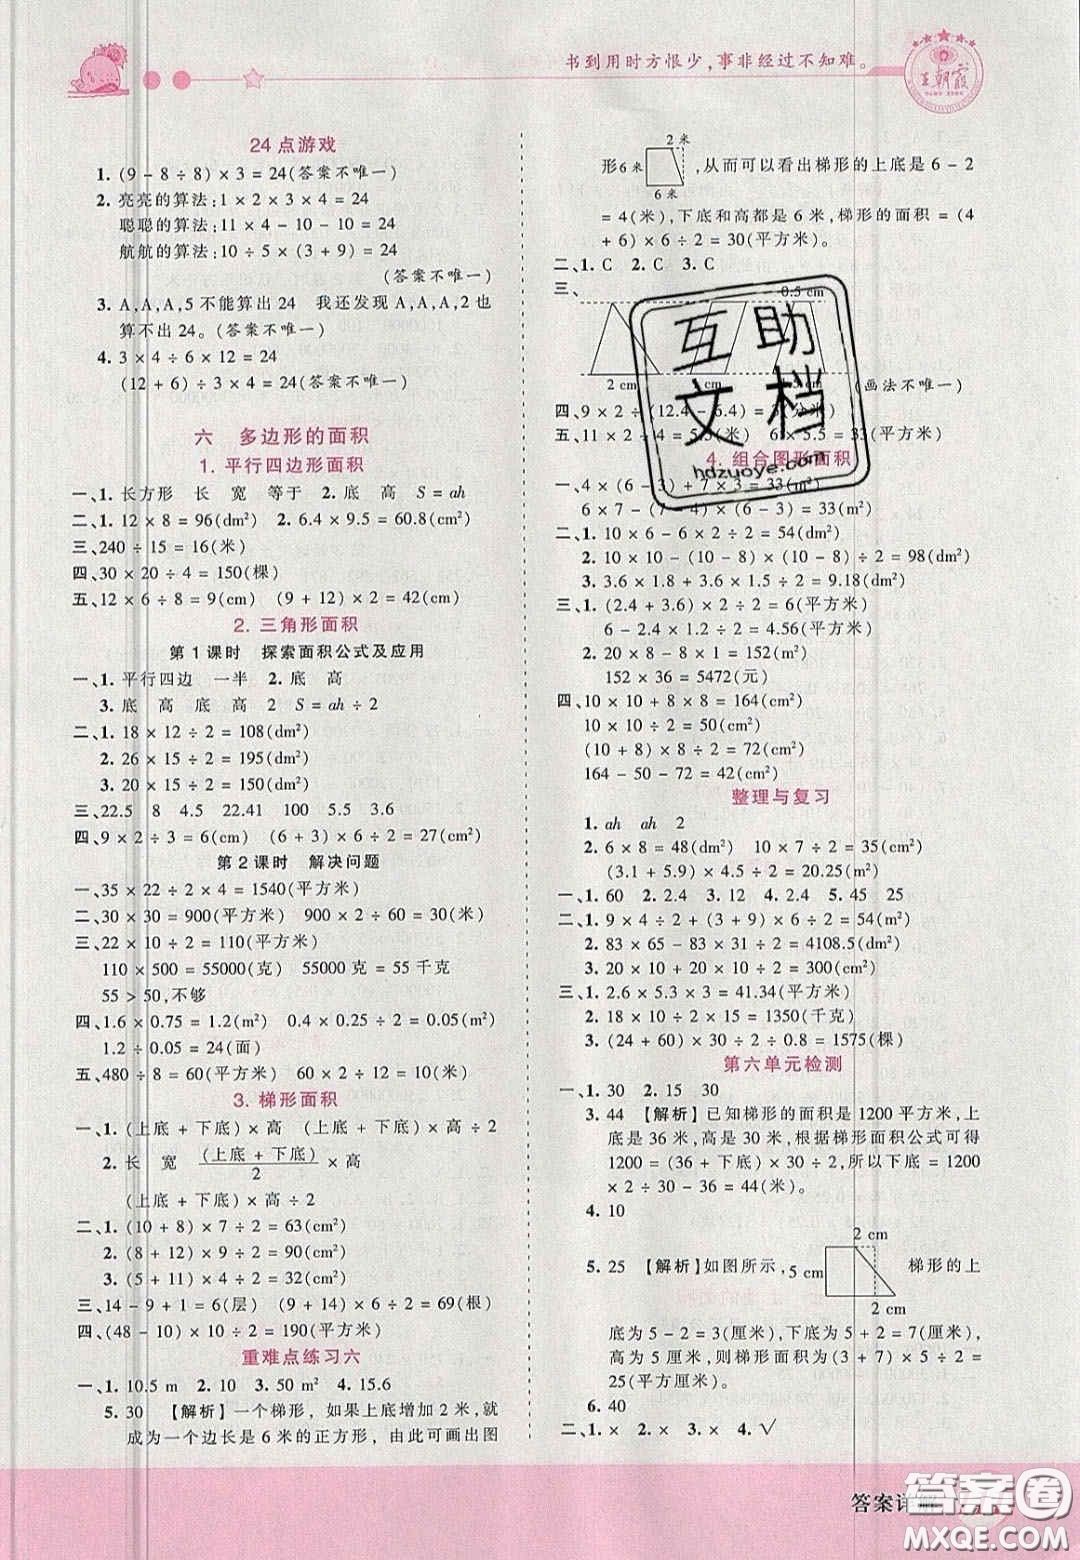 书到用时方恨少,事非经过不知难。
王朝霞
24 点游戏
1. (9 - 8 ÷ 8) × 3 = 24(答案不唯一)
2. 亮亮的算法:1 × 2 × 3 × 4 = 24
聪聪的算法:11 × 4 - 10 - 10 = 24
航航的算法:10 ÷ 5 × (3 + 9) = 24
(答案不唯一)
3. A,A,A,5 不能算出 24 我还发现 A,A,A,2 也
算不出 24。(答案不唯一)
4. 3 × 4 ÷ 6 × 12 = 24
(12 + 6) ÷ 3 × 4 = 24(答案不唯一)
六 多边形的面积
1. 平行四边形面积
一、1. 长方形 长 宽 等于 2. 底 高 S = ah
二、1. 12 × 8 = 96(dm²) 2. 6.4 × 9.5 = 60.8(cm²)
三、240 ÷ 15 = 16(米)
四、30 × 20 ÷ 4 = 150(棵)
五、12 × 6 ÷ 8 = 9(cm) (9 + 12) × 2 = 42(cm)
2. 三角形面积
第 1 课时 探索面积公式及应用
一、1. 平行四边 一半 2. 底 高
3. 底 高 底 高 2 S = ah ÷ 2
二、1. 18 × 12 ÷ 2 = 108(dm²)
2. 26 × 15 ÷ 2 = 195(dm²)
3. 20 × 15 ÷ 2 = 150(dm²)
三、22.5 8 4.5 22.41 100 5.5 3.6
四、9 × 2 ÷ 3 = 6(cm) (6 + 3) × 6 ÷ 2 = 27(cm²)
第 2 课时 解决问题
一、35 × 22 ÷ 2 × 4 = 1540(平方米)
二、30 × 30 = 900(平方米) 900 × 2 ÷ 60 = 30(米)
三、22 × 10 ÷ 2 = 110(平方米)
110 × 500 = 55000(克) 55000 克 = 55 千克
55 > 50,不够
四、1.6 × 0.75 = 1.2(m²) 0.4 × 0.25 ÷ 2 = 0.05(m²)
1.2 ÷ 0.05 = 24(面)
五、480 ÷ 8 = 60(米) 60 × 22 ÷ 2 = 660(平方米)
3. 梯形面积
一、1. (上底 + 下底) × 高 (上底 + 下底) × 高 ÷ 2
2. 长 宽 (上底 + 下底)/2 × 高
(上底 + 下底) × 高 ÷ 2
二、1. (10 + 8) × 7 ÷ 2 = 63(cm²)
2. (8 + 12) × 9 ÷ 2 = 90(cm²)
3. (5 + 11) × 4 ÷ 2 = 32(cm²)
三、14 - 9 + 1 = 6(层) (9 + 14) × 6 ÷ 2 = 69(根)
四、(48 - 10) × 10 ÷ 2 = 190(平方米)
重难点练习六
一、1. 10.5 m 2. 10 3. 50 m² 4. 15.6
5. 30 【解析】一个梯形，如果上底增加 2 米,就
成为一个边长是 6 米的正方形，由此可画出图
2 米
形 6 米 ,从而可以看出梯形的上底是 6 - 2
6 米
= 4(米),下底和高都是 6 米,梯形的面积 = (4
+ 6) × 6 ÷ 2 = 30(平方米)。
二、1. C 2. C 3. C
三、
0.5 cm
2 cm cm cm (画法不唯一)
四、9 × 2 ÷ (12.4 - 6.4) = 3(分米)
五、11 × 2 ÷ 4 = 5.5(米) 6 × 5.5 = 33(平方米)
4. 组合图形面积
一、4 × (6 - 3) + 7 × 3 = 33(m²)
6 × 7 - (7 - 4) × (6 - 3) = 33(m²)
二、1. 10 × 6 - 6 × 2 ÷ 2 = 54(dm²)
2. 10 × 10 - (10 - 8) × (10 - 8) ÷ 2 = 98(dm²)
3. 3.6 × 1.8 + 3.6 × 1.5 ÷ 2 = 9.18(dm²)
三、1. (2.4 + 3.6) × 2 ÷ 2 = 6(平方米)
6 - 2.4 × 1 ÷ 2 = 4.8(平方米)
2. 20 × 8 - 8 × 1 = 152(m²)
152 × 36 = 5472(元)
四、10 × 10 + 8 × 8 = 164(cm²)
10 × 10 ÷ 2 = 50(cm²)
(10 + 8) × 8 ÷ 2 = 72(cm²)
164 - 50 - 72 = 42(cm²)
整理与复习
1. ah ah 2
2. 6 × 8 = 48(dm²) 10 × 7 ÷ 2 = 35(dm²)
(3.1 + 5.9) × 4.5 ÷ 2 = 20.25(m²)
一、1. 60 2. 2.4 3. 12 4. 2.4 5. 45 25
二、1. 9 × 4 ÷ 2 + (3 + 9) × 6 ÷ 2 = 54(m²)
2. 83 × 65 - 83 × 31 ÷ 2 = 4108.5(dm²)
3. 20 × 20 + 10 × 10 ÷ 2 = 450(dm²)
三、1. 2.6 × 5.3 × 3 = 41.34(平方米)
2. 18 × 10 ÷ 2 × 15 = 1350(千克)
3. (24 + 60) × 30 ÷ 2 ÷ 0.8 = 1575(棵)
第六单元检测
一、1. 30 2. 15 30
3. 44 【解析】已知梯形的面积是 1200 平方米,上
底是 36 米,高是 30 米,根据梯形面积公式可得
1200 = (36 + 下底) × 30 ÷ 2,所以下底 = 1200
× 2 ÷ 30 - 36 = 44(米)。
4. 10
2 cm
5. 25 【解析】如图所示, 5 cm 梯形的上
2 cm
底为 5 - 2 = 3(厘米),下底为 5 + 2 = 7(厘米),
高为 5 厘米,则梯形的面积为 (3 + 7) × 5 ÷ 2 =
25(平方厘米)。
6. 40
二、1. × 2. × 3. × 4. √
互助
文档
hdzuoye.com
答案详解
答案圈
MXQE.COM